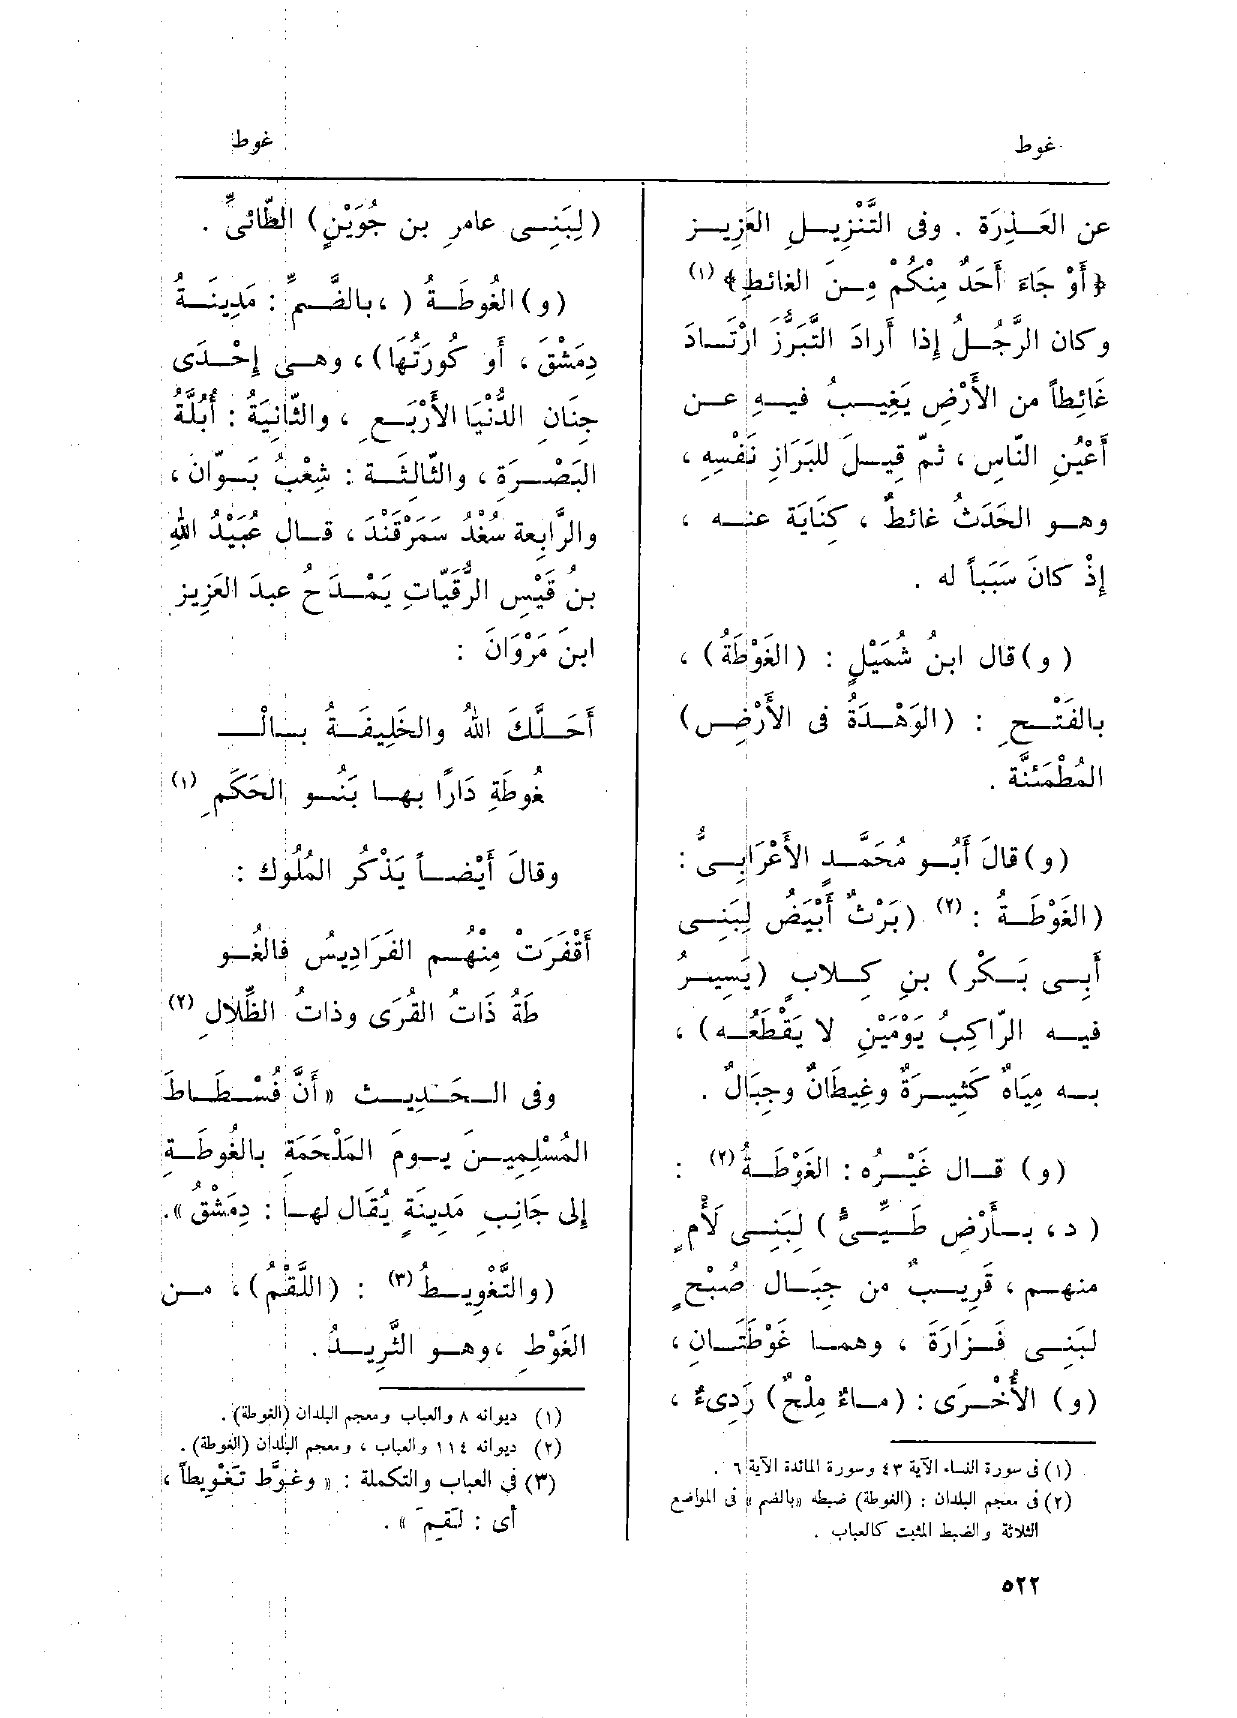 غوط
غوط
عن العَـذِرَة . وفى التَّنْزِيـلِ العَزِيـز
﴿أَوْ جَاءَ أَحَدٌ مِنْكُمْ مِـنَ الغائطِ﴾ (١)
وكان الرَّجُـلُ إذا أَرادَ التَّبَرُّزَ ارْتَـادَ
غَائِطاً من الأَرْضِ يَغِيـبُ فيـهِ عـن
أَعْيُنِ النّاسِ ، ثمّ قِيـلَ للبَرَازِ نَفْسِهِ ،
وهـو الحَدَثُ غائطٌ ، كِنَايَة عنـه ،
إِذْ كانَ سَبَباً له .
( و)قال ابنُ شُمَيْلٍ : (الغَوْطَةُ) ،
بالفَتْـحِ : (الوَهْـدَةُ فى الأَرْضِ)
المُطْمَئنَّة .
(و)قالَ أَبُـو مُحَمَّـدٍ الأَعْرَابِـىُّ :
(الغَوْطَـةُ : (٢) (بَرْثٌ أَبْيَضُ لِبَنِـى
أَبِـى بَـكْر) بنِ كِـلابٍ (يَسِيـرُ
فيـه الرّاكِبُ يَوْمَيْنِ لا يَقْطَعُـه) ،
بـه مِيَاهٌ كَثِيـرَةٌ وغِيطَانٌ وجِبَالٌ .
(و) قـال غَيْـرُه : الغَوْطَـةُ(٢) :
( د، بـأَرْضِ طَـيِّـئٍ) لِبَنِـى لَأْمٍ
منهـم ، قَرِيـبٌ من جِبَـال صُبْحٍ
لبَنِـى فَـزَارَةَ ، وهمـا غَوْطَتَـانِ ،
(و) الأُخْـرَى : (مـاءٌ مِلْحٌ) رَدِىءٌ ،
(١) فى سورة النساء الآية ٤٣ وسورة المائدة الآية ٦ .
(٢) فى معجم البلدان : (الغوطة) ضبطه «بالضم» فى المواضع
الثلاثة والضبط المثبت كالعباب .
(لِبَنِـى عامرِ بن جُوَيْنٍ) الطّائىِّ .
(و)الغُوطَـةُ ( ،بالضَّـمِّ : مَدِينَـةُ
دِمَشْقَ ، أَو كُورَتُهَا) ، وهـى إِحْـدَى
جِنَانِ الدُّنْيَا الأَرْبَـعِ ، والثّانِيَةُ : أُبُلَّةُ
البَصْـرَة ، والثّالثَـة : شِعْبُ بَـوّان ،
والرَّابِعة سُغْدُ سَمَرْقَنْدَ ، قـال عُبَيْدُ اللهِ
بنُ قَيْسِ الرُّقَيّاتِ يَمْـدَحُ عبدَ العَزِيز
ابنَ مَرْوَانَ :
أَحَـلَّكَ اللهُ والخَلِيفَـةُ بـالْـ
غُوطَةِ دَارًا بهـا بَنُـو الحَكَمِ (١)
وقالَ أَيْضـاً يَذْكُر المُلُوك :
أَقْفَرَتْ مِنْهـم الفَرَادِيسُ فالغُـو
طَةُ ذَاتُ القُرَى وذاتُ الظِّلالِ (٢)
وفى الـحَـدِيـث « أَنَّ فُسْـطَـاطَ
المُسْلِمِيـنَ يـومَ المَلْحَمَةِ بالغُوطَـةِ
إِلى جَانِبِ مَدِينَةٍ يُقَال لهـا : دِمَشْقُ ».
(والتَّغْوِيـطُ(٣) : (اللَّقْمُ) ، مـن
الغَوْطِ ،وهـو الثَّرِيـدُ .
(١) ديوانه ٨ والعباب ومعجم البلدان (الغوطة) .
(٢) ديوانه ١١٤ والعباب ، ومعجم البلدان (الغوطة) .
(٣) فى العباب والتكملة : « وغوَّط تَغْوِيطاً ،
أى : لَقّمَ » .
٥٢٢